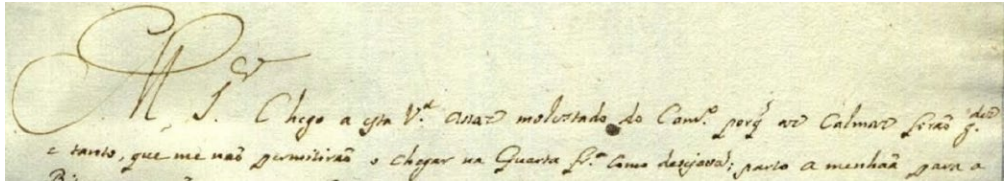 M S.ᵒʳ
Chego a esta V.ª asaz molestado do Cam.º porq̃ as Calmas forão g.ᵈᵉˢ
e tanto, que me não permitirão o chegar na Quarta fr.ª como desejava; parto a menhaã para a